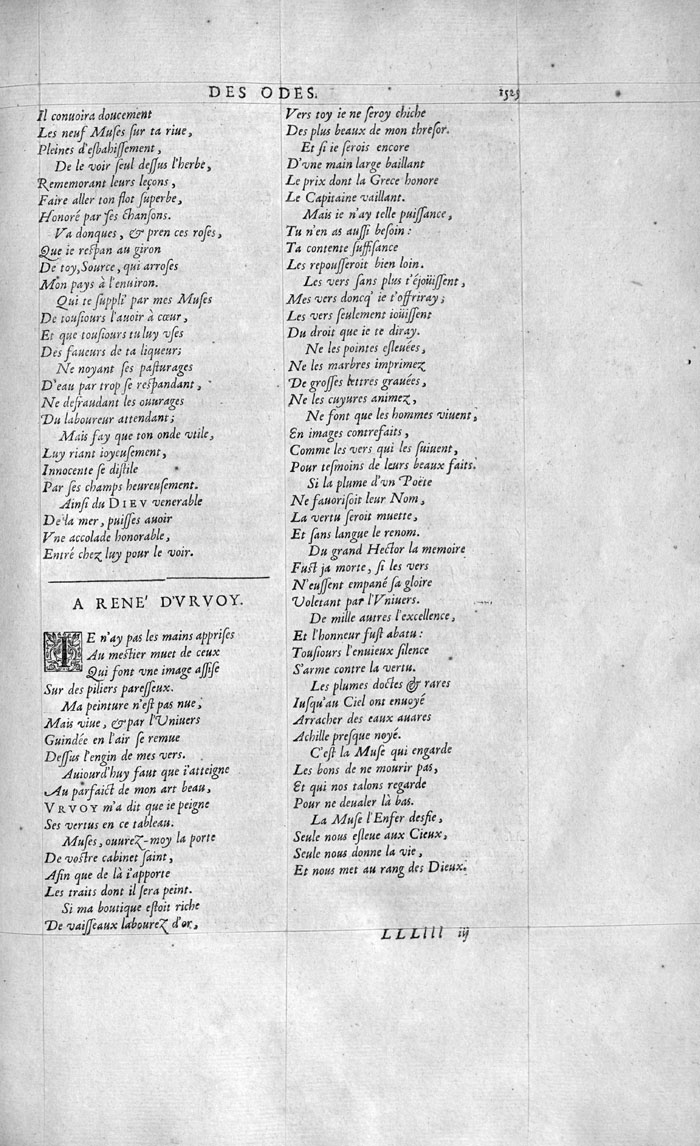 DES ODES. 1525
Il conuoira doucement
Les neuf Muſes ſur ta riue,
Pleines d'eſbahiſſement,
De le voir ſeul deſſus l'herbe,
Rememorant leurs leçons,
Faire aller ton flot ſuperbe,
Honoré par ſes chanſons.
Va donques, & pren ces roſes,
Que ie reſpan au giron
De toy, Source, qui arroſes
Mon pays à l'enuiron.
Qui te ſuppli' par mes Muſes
De touſiours l'auoir à cœur,
Et que touſiours tu luy vſes
Des faueurs de ta liqueur;
Ne noyant ſes paſturages
D'eau par trop ſe reſpandant,
Ne defraudant les ouurages
Du laboureur attendant;
Mais fay que ton onde vtile,
Luy riant ioyeuſement,
Innocente ſe diſtile
Par ſes champs heureuſement.
Ainſi du DIEV venerable
De la mer, puiſſes auoir
Vne accolade honorable,
Entré chez luy pour le voir.
A RENE' D'VRVOY.
IE n'ay pas les mains appriſes
Au meſtier muet de ceux
Qui font vne image aſſiſe
Sur des piliers pareſſeux.
Ma peinture n'eſt pas nue,
Mais viue, & par l'Vniuers
Guindée en l'air ſe remue
Deſſus l'engin de mes vers.
Auiourd'huy faut que i'atteigne
Au parfaict de mon art beau,
VRVOY m'a dit que ie peigne
Ses vertus en ce tableau.
Muſes, ouurez-moy la porte
De voſtre cabinet ſaint,
Afin que de là i'apporte
Les traits dont il ſera peint.
Si ma boutique eſtoit riche
De vaiſſeaux labourez d'or,
Vers toy ie ne ſeroy chiche
Des plus beaux de mon threſor.
Et ſi ie ſerois encore
D'vne main large baillant
Le prix dont la Grece honore
Le Capitaine vaillant.
Mais ie n'ay telle puiſſance,
Tu n'en as auſſi beſoin:
Ta contente ſuffiſance
Les repouſſeroit bien loin.
Les vers ſans plus t'éjoüiſſent,
Mes vers doncq' ie t'offriray;
Les vers ſeulement ioüiſſent
Du droit que ie te diray.
Ne les pointes eſleuées,
Ne les marbres imprimez
De groſſes lettres grauées,
Ne les cuyures animez,
Ne font que les hommes viuent,
En images contrefaits,
Comme les vers qui les ſuiuent,
Pour teſmoins de leurs beaux faits.
Si la plume d'vn Poëte
Ne fauoriſoit leur Nom,
La vertu ſeroit muette,
Et ſans langue le renom.
Du grand Hector la memoire
Fuſt ja morte, ſi les vers
N'euſſent empané ſa gloire
Voletant par l'Vniuers.
De mille autres l'excellence,
Et l'honneur fuſt abatu:
Touſiours l'enuieux ſilence
S'arme contre la vertu.
Les plumes doctes & rares
Iuſqu'au Ciel ont enuoyé
Arracher des eaux auares
Achille preſque noyé.
C'eſt la Muſe qui engarde
Les bons de ne mourir pas,
Et qui nos talons regarde
Pour ne deualer là bas.
La Muſe l'Enfer desfie,
Seule nous eſleue aux Cieux,
Seule nous donne la vie,
Et nous met au rang des Dieux.
LLLlll iij